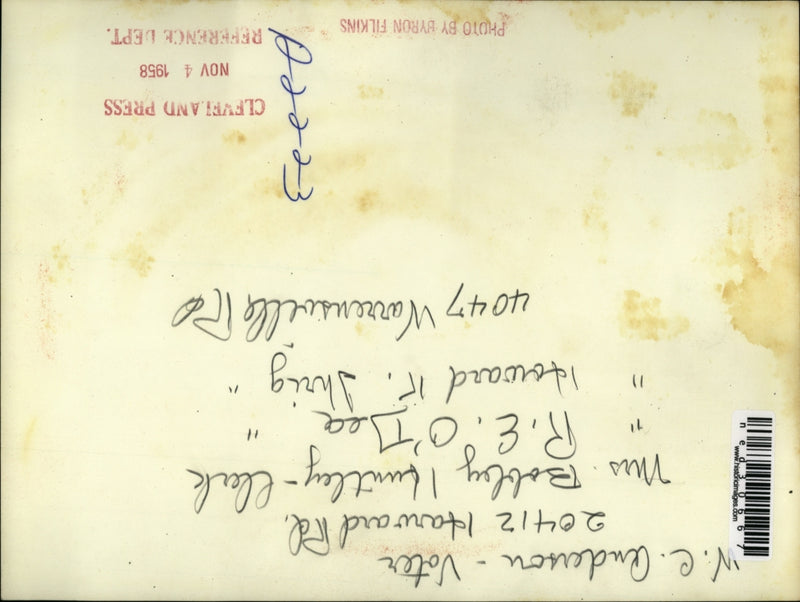 W. C. Anderson - Voter
20412 Harvard Rd.
Mrs. Bobley Huntley - Clerk
" R. E. O'Dea "
" Howard K. Ihrig "
4047 Warrensville Rd
CLEVELAND PRESS
NOV 4 1958
REFERENCE DEPT.
PHOTO BY BYRON FILKINS
ned30667
www.historicimages.com